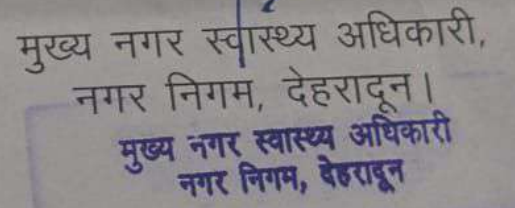 मुख्य नगर स्वास्थ्य अधिकारी,
नगर निगम, देहरादून।
मुख्य नगर स्वास्थ्य अधिकारी
नगर निगम, देहरादून